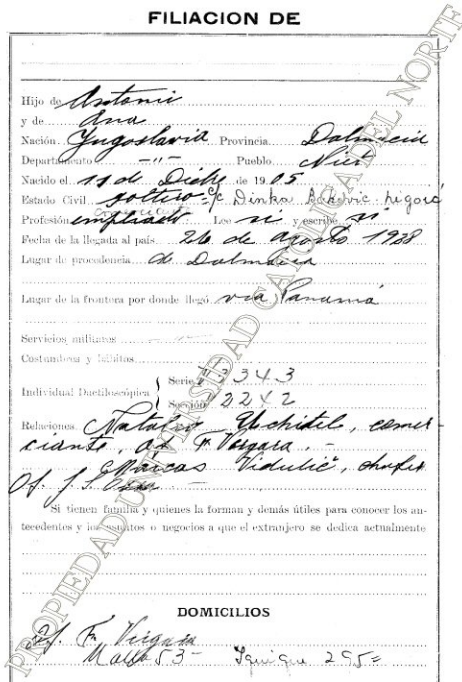 FILIACION DE
Hijo de Antonii
y de Ana
Nación Yugoslavia Provincia Dalmacia
Departamento -"- Pueblo
Nacido el 11 de Dicbe de 1905
Estado Civil soltero c/c Dinka
Profesión empleado Lee si y escribe si
Fecha de la llegada al país 26 de agosto 1928
Lugar de procedencia de Dalmacia
Lugar de la frontera por donde llegó via Panamá
Servicios militares
Costumbres y hábitos
Individual Dactiloscópica
Serie 343
Sección 2242
Relaciones Natalio comer-
ciante, Of. Fr. Vergara. -
Vidulić, chofer
Of.
Si tienen familia y quienes la forman y demás útiles para conocer los an-
tecedentes y los asuntos o negocios a que el extranjero se dedica actualmente
DOMICILIOS
Of. Fr. Vergara
53 - Iquique 295=
PROPIEDAD UNIVERSIDAD CATOLICA DEL NORTE